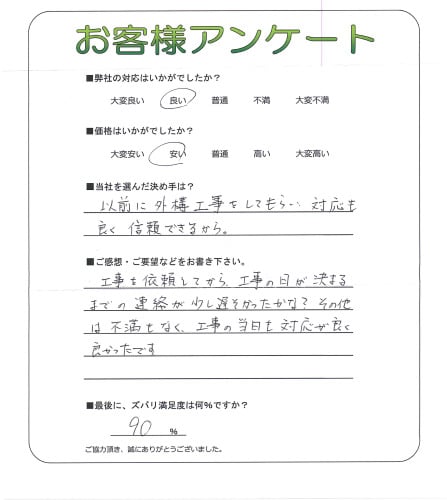 お客様アンケート
■弊社の対応はいかがでしたか？
大変良い 良い 普通 不満 大変不満
■価格はいかがでしたか？
大変安い 安い 普通 高い 大変高い
■当社を選んだ決め手は？
以前に外構工事をしてもらい 対応も
良く 信頼できるから。
■ご感想・ご要望などをお書き下さい。
工事を依頼してから、工事の日が決まる
までの連絡が少し遅そかったかな？その他
は不満もなく、工事の当日も対応が良く
良かったです
■最後に、ズバリ満足度は何％ですか？
90 ％
ご協力頂き、誠にありがとうございました。